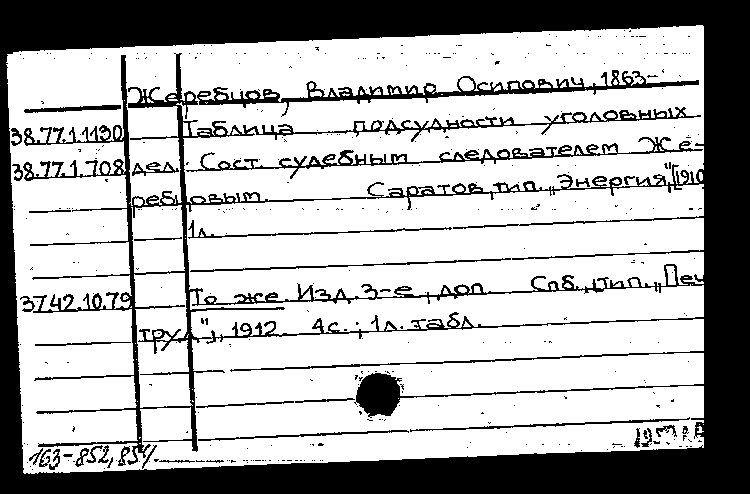 Жеребцов, Владимир Осипович, 1863-
38.77.1.1130 Таблица подсудности уголовных
38.77.1.708 дел. Сост. судебным следователем Же-
ребцовым. Саратов, тип. „Энергия", [1910
1л.
37.42.10.79 То же. Изд. 3-е, доп. Спб., тип. „Печ
труд", 1912. 4с.; 1л. табл.
163-852, 854.